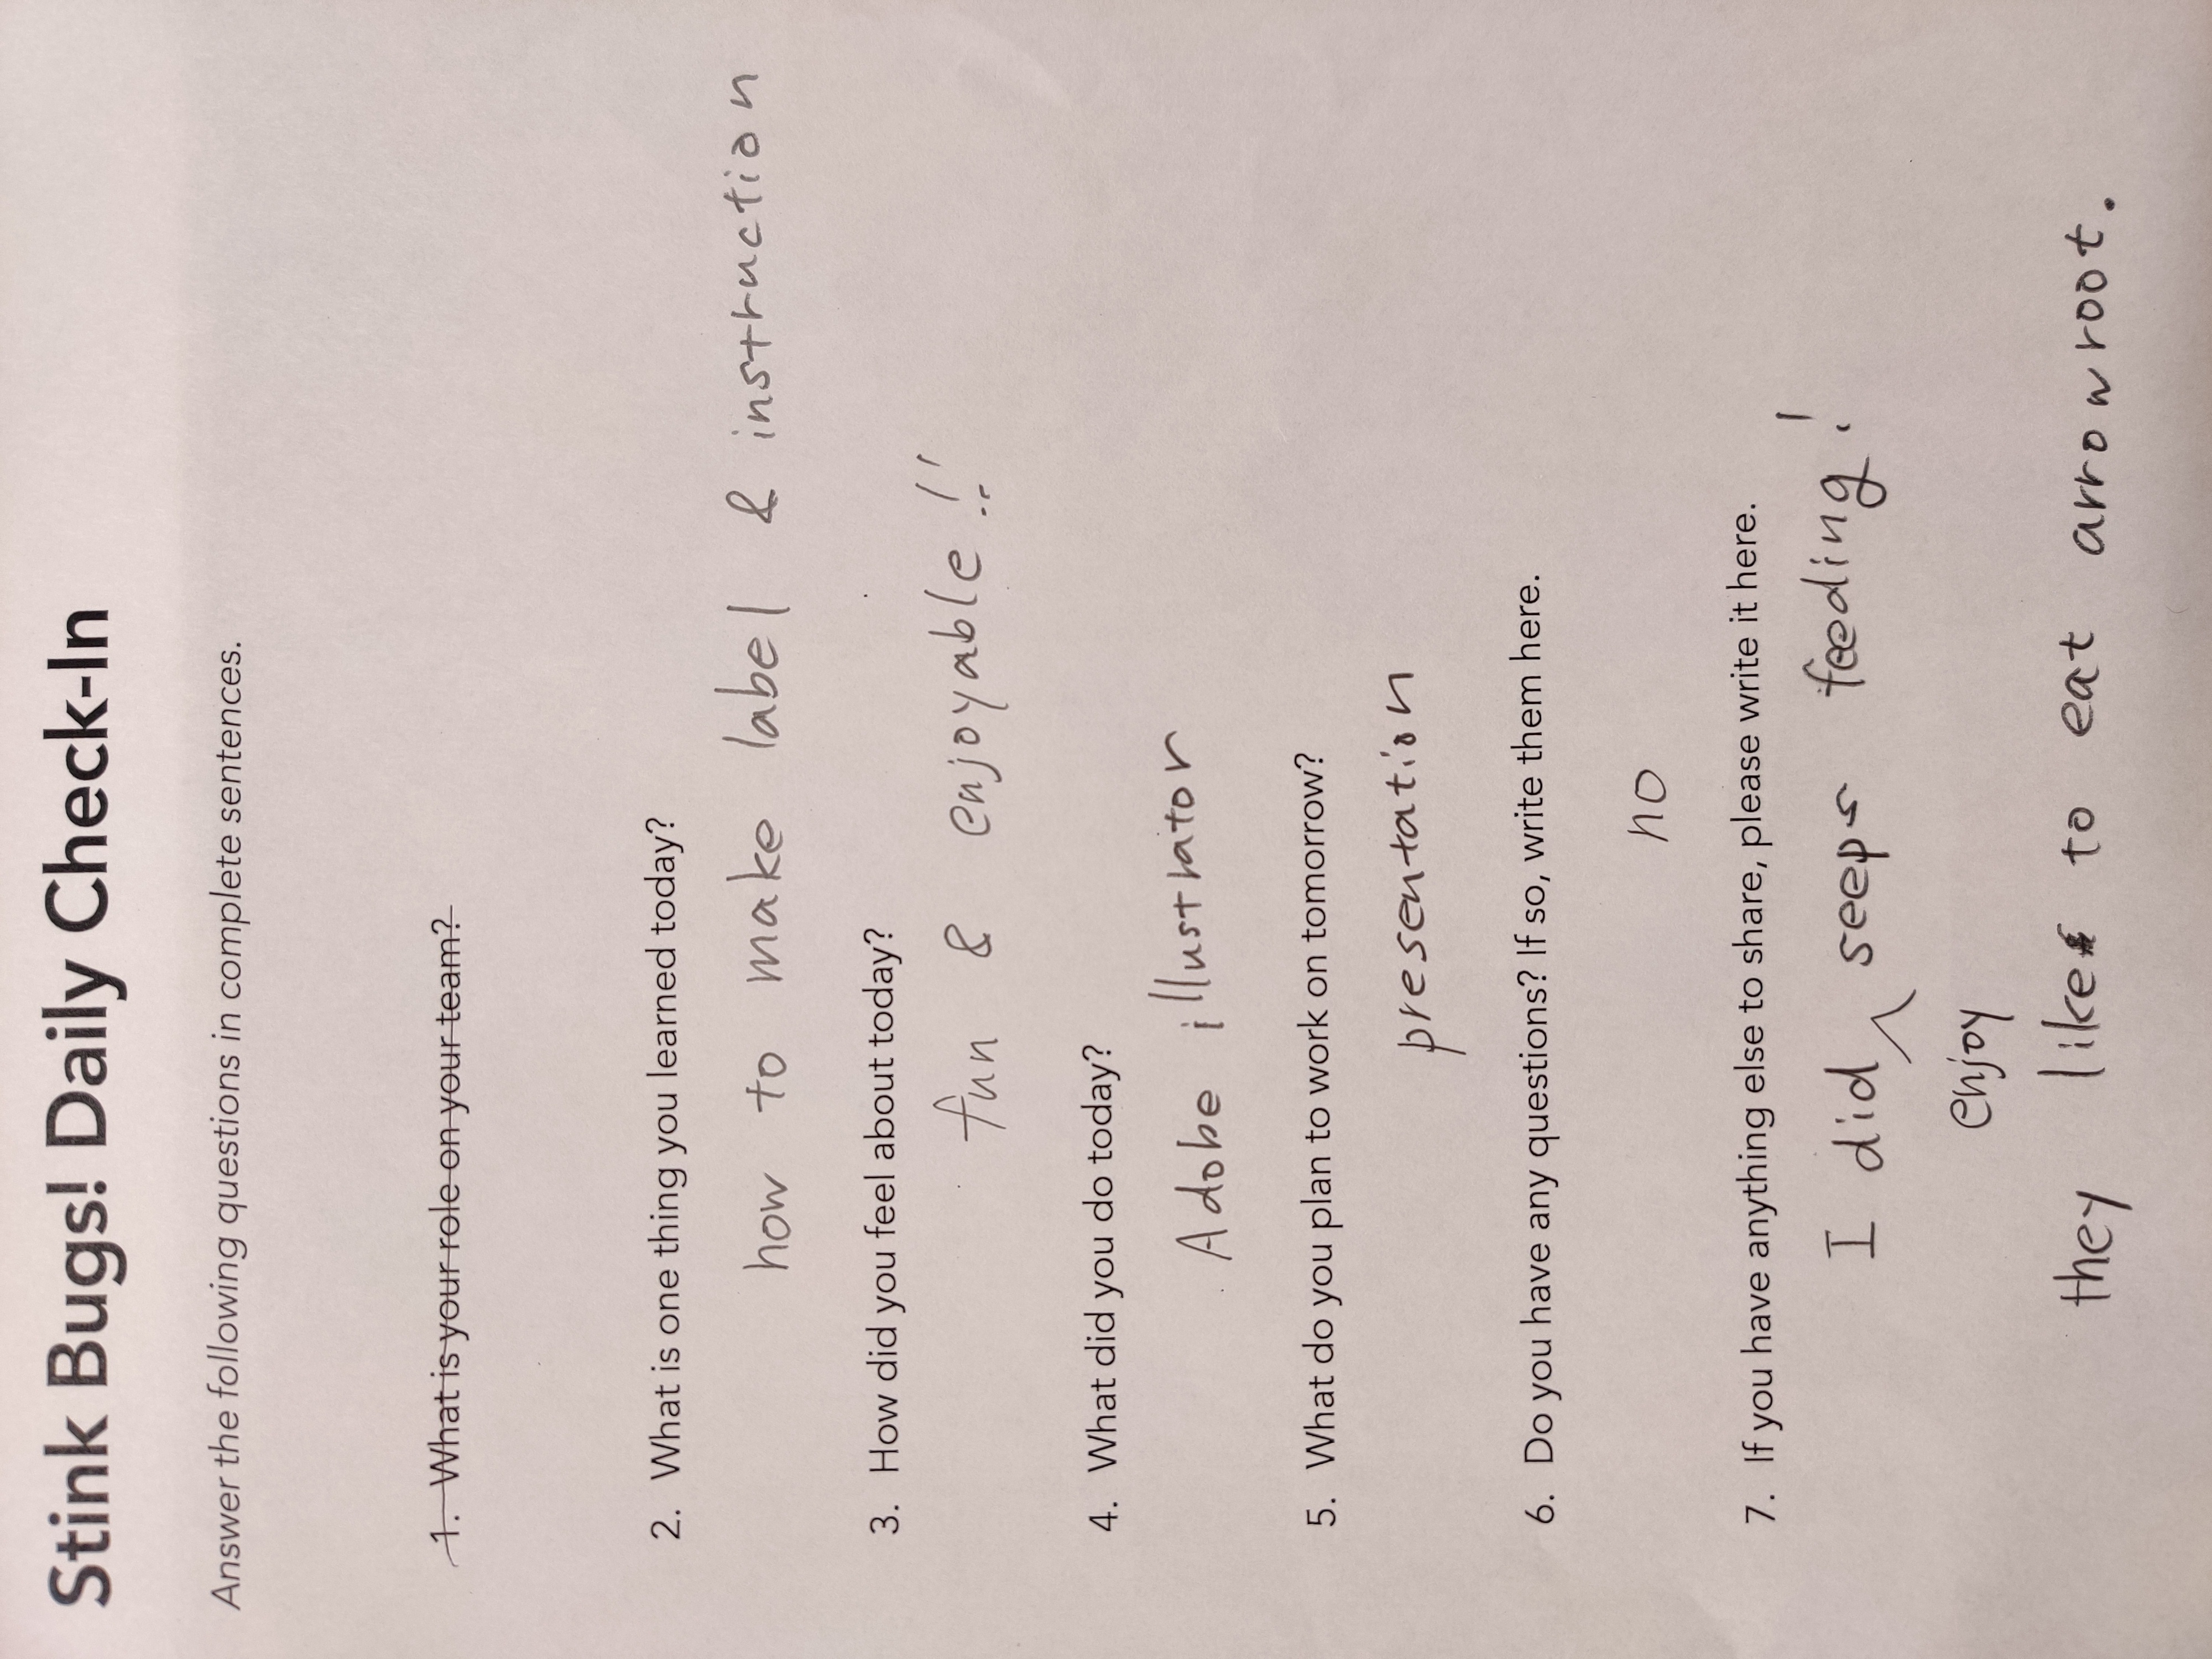 Stink Bugs! Daily Check-In
Answer the following questions in complete sentences.
1. What is your role on your team?
2. What is one thing you learned today?
how to make label & instruction
3. How did you feel about today?
fun & enjoyable!!
4. What did you do today?
Adobe illustrator
5. What do you plan to work on tomorrow?
presentation
6. Do you have any questions? If so, write them here.
no
7. If you have anything else to share, please write it here.
I did seeps feeding!
enjoy
they like to eat arrowroot.